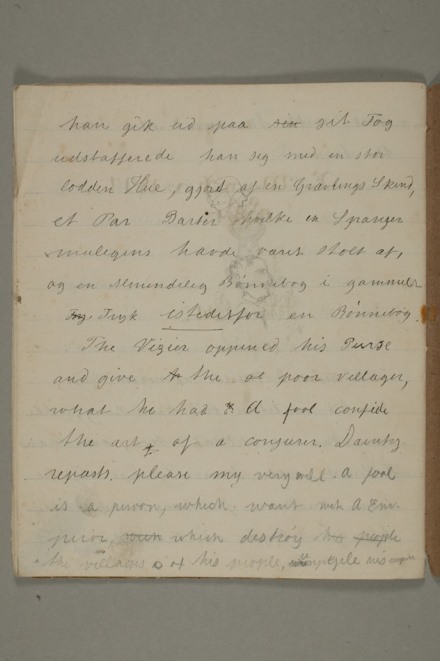 han gik ud paa sit Tog
udstafferede han seg med en stor
lodden Hue, gjord af en Grævlings Skind,
et Par Barter hvilke en Spanger
muligens havde været stolt af,
og en Almindelig Bønnebog i gammel
Tryk istedetfor en Bønnebog.
The Vizier oppened his Purse
and give the ol poor villager,
what he had A fool confide
the art of a conjurer. Dainty
repasts please my very well. A fool
is a person, which want A Em-
peror, which destroy
the villains of his people,